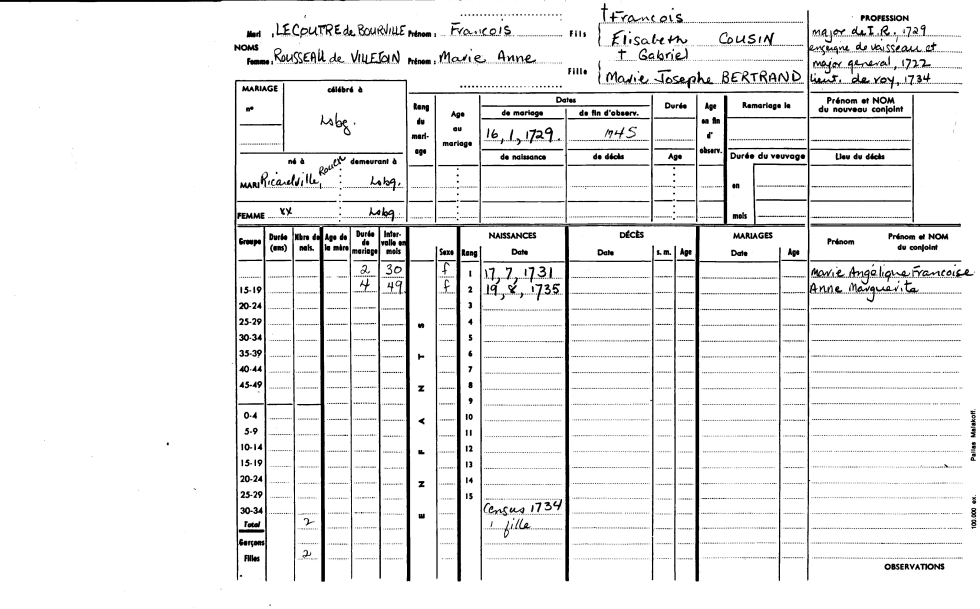 Mari : LE COUTRE de BOURVILLE Prénom : François Fils † François
Elisabeth COUSIN
NOMS
Femme : ROUSSEAU de VILLEJOIN Prénom : Marie Anne Fille † Gabriel
Marie Josephe BERTRAND
PROFESSION
major de I.R., 1729
enseigne de vaisseau et
major general, 1722
lieut. de roy, 1734
MARIAGE célébré à
n°
Lsbg.
Rang du mari- age
Age au mariage
Dates
de mariage de fin d'observ.
16, 1, 1729. 1745
de naissance de décès
Durée
Age
Age en fin d' observ.
Remariage le
Durée du veuvage
en
mois
Prénom et NOM du nouveau conjoint
Lieu du décès
né à demeurant à
MARI Ricardville, Rouen Lsbg.
FEMME xx Lsbg.
Groupe Durée (ans) Nbre de nais. Age de la mère Durée de mariage Inter- valle en mois
ENFANTS
Sexe Rang NAISSANCES Date DÉCÈS Date s. m. Age MARIAGES Date Age Prénom Prénom et NOM du conjoint
2 30 f 1 17, 7, 1731 Marie Angélique Francoise
15-19 4 49 f 2 19, 8, 1735 Anne Marguerite
20-24 3
25-29 4
30-34 5
35-39 6
40-44 7
45-49 8
9
0-4 10
5-9 11
10-14 12
15-19 13
20-24 14
25-29 15
30-34 Census 1734
Total 2 1 fille
Garçons
Filles 2
OBSERVATIONS
100.000 ex. Pallas Malakoff.